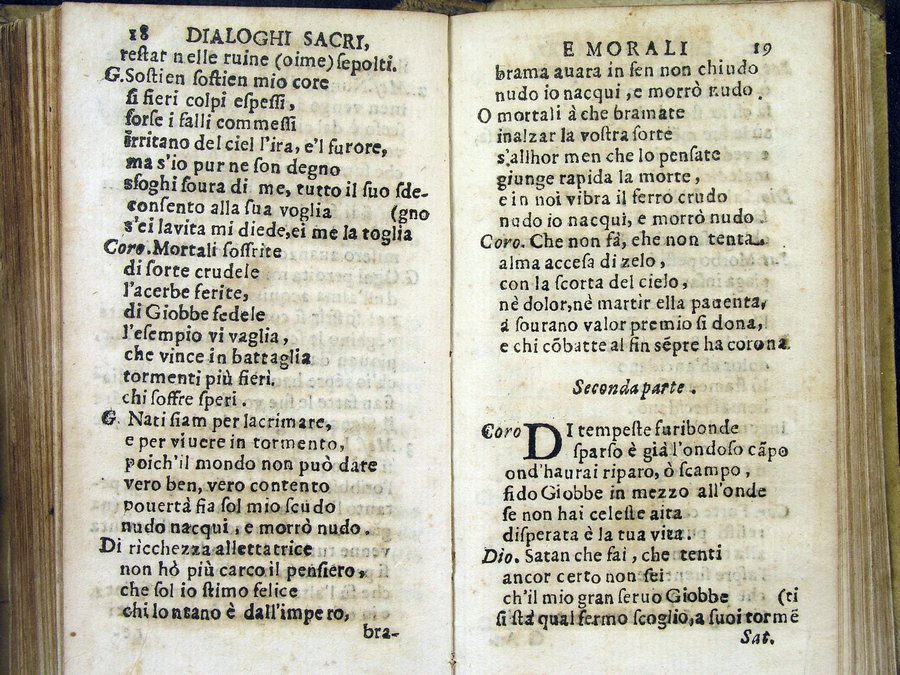 18 DIALOGHI SACRI,
restar nelle ruine (oime) sepolti.
G. Sostien sostien mio core
si fieri colpi espessi,
forse i falli commessi
irritano del ciel l'ira, e'l furore,
ma s'io pur ne son degno
sfoghi soura di me, tutto il suo sde-
consento alla sua voglia (gno
s'ei la vita mi diede, ei me la toglia
Coro. Mortali soffrite
di sorte crudele
l'acerbe ferite,
di Giobbe fedele
l'esempio vi vaglia,
che vince in battaglia
tormenti più fieri.
chi soffre speri.
G Nati siam per lacrimare,
e per viuere in tormento,
poich'il mondo non può dare
vero ben, vero contento
pouertà fia sol mio scudo
nudo nacqui, e morrò nudo.
Di ricchezza allettatrice
non hò più carco il pensiero,
che sol io stimo felice
chi lontano è dall'impero,
bra-
E MORALI 19
brama auara in sen non chiudo
nudo io nacqui, e morrò nudo.
O mortali à che bramate
inalzar la vostra sorte
s'allhor men che lo pensate
giunge rapida la morte,
e in noi vibra il ferro crudo
nudo io nacqui, e morrò nudo
Coro. Che non fà, che non tenta
alma accesa di zelo,
con la scorta del cielo,
nè dolor, nè martir ella pauenta,
à sourano valor premio si dona,
e chi cõbatte al fin sẽpre ha corona
Seconda parte.
Coro DI tempeste furibonde
sparso è già l'ondoso cãpo
ond'haurai riparo, ò scampo,
fido Giobbe in mezzo all'onde
se non hai celeste aita
disperata è la tua vita.
Dio. Satan che fai, che tenti
ancor certo non sei
ch'il mio gran seruo Giobbe (ti
si stà qual fermo scoglio, a suoi tormẽ
Sat.